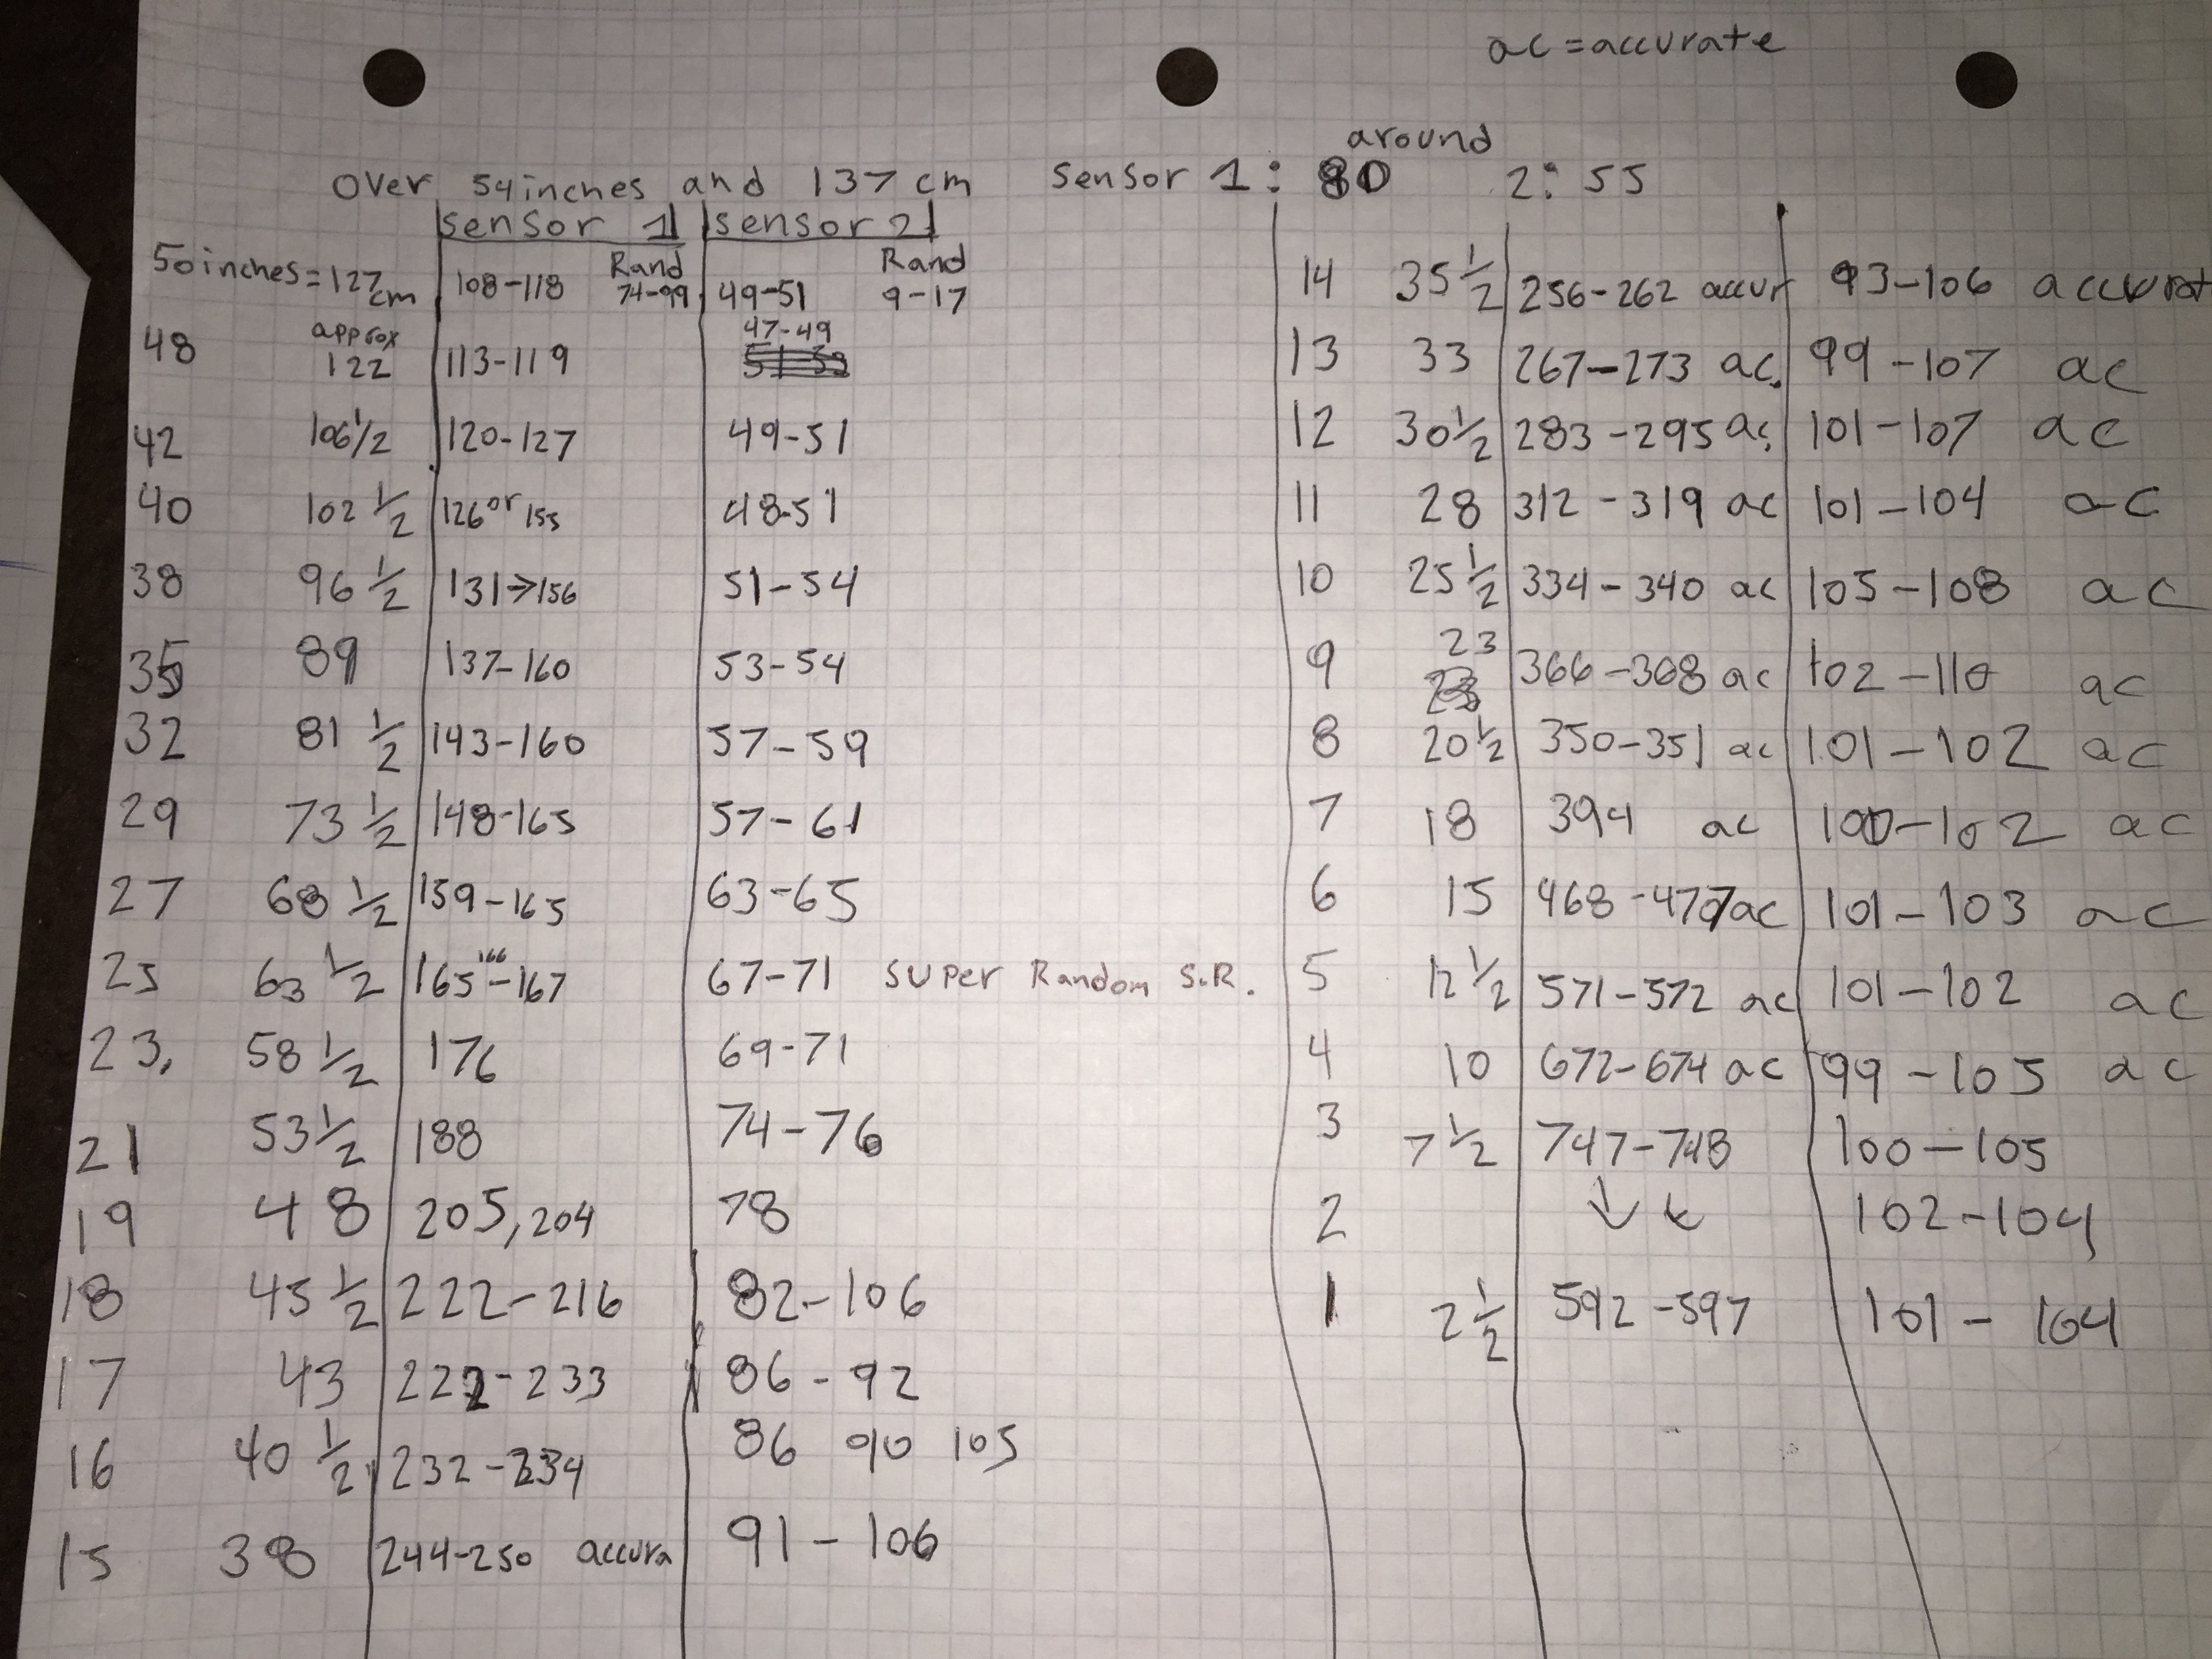 ac = accurate
around
Over 54 inches and 137 cm sensor 1: 80 2: 55
sensor 1 sensor 2
50 inches = 127 cm 108-118 Rand 74-99 49-51 Rand 9-17
48 approx 122 113-119 47-49
42 106 1/2 120-127 49-51
40 102 1/2 126 or 155 48-51
38 96 1/2 131→156 51-54
35 89 137-160 53-54
32 81 1/2 143-160 57-59
29 73 1/2 148-165 57-61
27 68 1/2 159-165 63-65
25 63 1/2 165-166-167 67-71 SUPER Random S.R.
23. 58 1/2 176 69-71
21 53 1/2 188 74-76
19 48 205, 204 78
18 45 1/2 222-216 82-106
17 43 222-233 86-92
16 40 1/2 232-234 86 90 105
15 38 244-250 accura 91-106
14 35 1/2 256-262 accur 93-106 accurat
13 33 267-273 ac. 99-107 ac
12 30 1/2 283-295 ac 101-107 ac
11 28 312-319 ac 101-104 ac
10 25 1/2 334-340 ac 105-108 ac
9 23 366-368 ac 102-110 ac
8 20 1/2 350-351 ac 101-102 ac
7 18 394 ac 100-102 ac
6 15 468-470 ac 101-103 ac
5 12 1/2 571-572 ac 101-102 ac
4 10 672-674 ac 99-105 ac
3 7 1/2 747-748 100-105
2 102-104
1 2 1/2 592-597 101-104